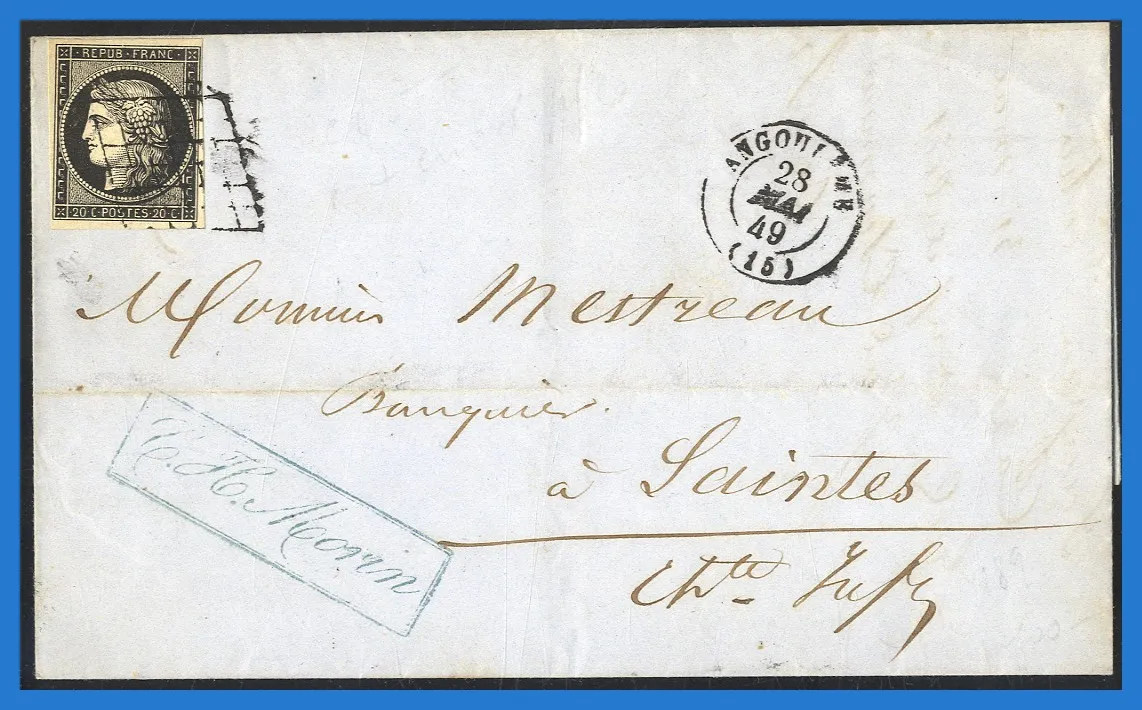 REPUB · FRANC ·
20 · C · POSTES · 20 · C
ANGOULÊME
28
MAI
49
(15)
Monsieur Mestreau
Banquier.
à Saintes
Chte Infre
C. H. Morin